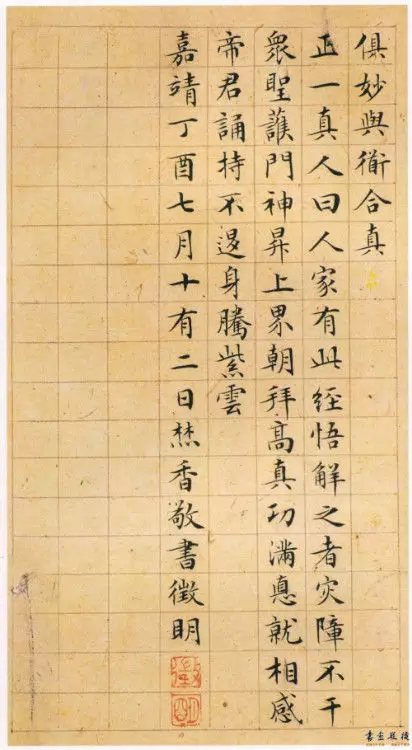 俱妙與衟合真
正一真人曰人家有此經悟解之者灾障不干
衆聖護門神昇上界朝拜高真功滿悳就相感
帝君誦持不退身騰紫雲
嘉靖丁酉七月十有二日焚香敬書徵明